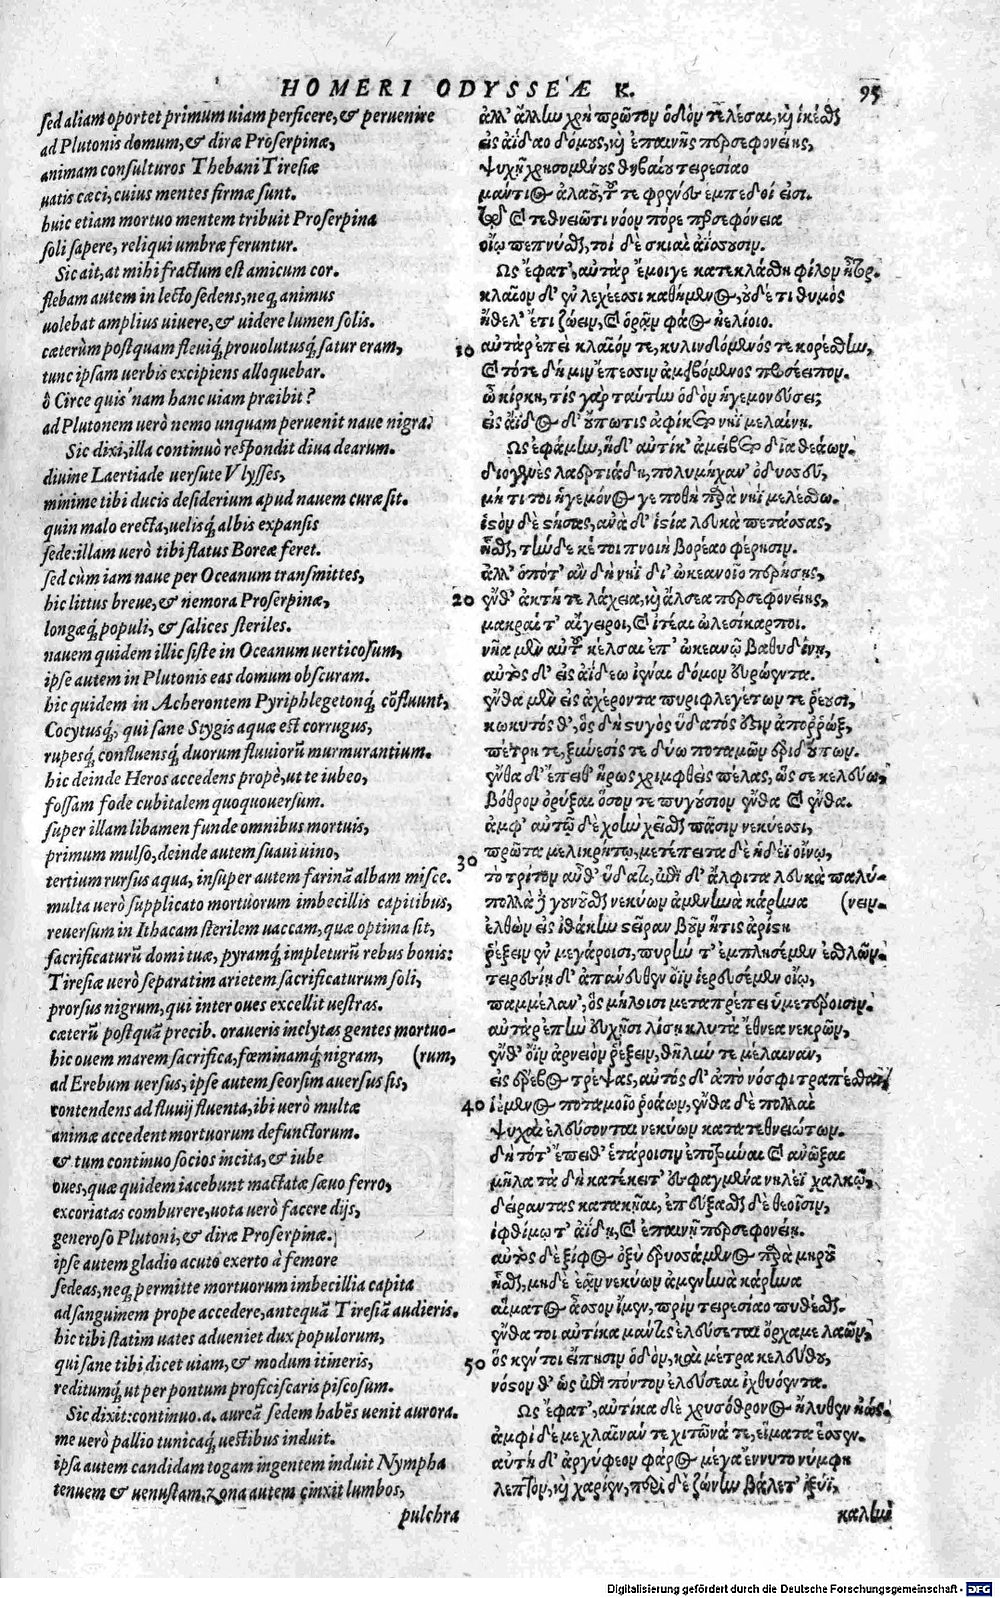 HOMERI ODYSSEÆ K.
95
sed aliam oportet primum uiam perficere, & peruenire
ad Plutonis domum, & diræ Proserpinæ,
animam consulturos Thebani Tiresiæ
uatis cæci, cuius mentes firmæ sunt.
huic etiam mortuo mentem tribuit Proserpina
soli sapere, reliqui umbræ feruntur.
Sic ait, at mihi fractum est amicum cor.
flebam autem in lecto sedens, neq; animus
uolebat amplius uiuere, & uidere lumen solis.
cæterùm postquam fleuiq; prouolutusq; satur eram,
tunc ipsam uerbis excipiens alloquebar.
ô Circe quis'nam hanc uiam præibit?
ad Plutonem uerò nemo unquam peruenit naue nigra.
Sic dixi, illa continuò respondit diua dearum.
diuine Laertiade uersute Vlysses,
minime tibi ducis desiderium apud nauem curæ sit.
quin malo erecta, uelisq; albis expansis
sede: illam uerò tibi flatus Boreæ feret.
sed cùm iam naue per Oceanum transmittes,
hic littus breue, & nemora Proserpinæ,
longæq; populi, & salices steriles.
nauem quidem illic siste in Oceanum uerticosum,
ipse autem in Plutonis eas domum obscuram.
hic quidem in Acherontem Pyriphlegetonq; cōfluunt,
Cocytusq;, qui sane Stygis aquæ est corrugus,
rupesq; confluensq; duorum fluuiorū murmurantium.
hic deinde Heros accedens propè, ut te iubeo,
fossam fode cubitalem quoquouersum.
super illam libamen funde omnibus mortuis,
primum mulso, deinde autem suaui uino,
tertium rursus aqua, insuper autem farinā albam misce.
multa uerò supplicato mortuorum imbecillis capitibus,
reuersum in Ithacam sterilem uaccam, quæ optima sit,
sacrificaturū domi tuæ, pyramq; impleturū rebus bonis:
Tiresiæ uerò separatim arietem sacrificaturum soli,
prorsus nigrum, qui inter oues excellit uestras.
cæterū postquā precib. oraueris inclytas gentes mortuo-
hic ouem marem sacrifica, fœminamq; nigram, (rum,
ad Erebum uersus, ipse autem seorsim auersus sis,
contendens ad fluuij fluenta, ibi uerò multæ
animæ accedent mortuorum defunctorum.
& tum continuo socios incita, & iube
oues, quæ quidem iacebunt mactatæ sæuo ferro,
excoriatas comburere, uota uerò facere dijs,
generoso Plutoni, & diræ Proserpinæ.
ipse autem gladio acuto exerto à femore
sedeas, neq; permitte mortuorum imbecillia capita
ad sanguinem prope accedere, antequā Tiresiā audieris.
hic tibi statim uates adueniet dux populorum,
qui sane tibi dicet uiam, & modum itineris,
reditumq; ut per pontum proficiscaris piscosum.
Sic dixit: continuo .a. aureā sedem habēs uenit aurora.
me uerò pallio tunicaq; uestibus induit.
ipsa autem candidam togam ingentem induit Nympha
tenuem & uenustam, zona autem cinxit lumbos,
pulchra
ἀλλ' ἄλλην χρὴ πρῶτον ὁδὸν τελέσαι, καὶ ἱκέσθαι
εἰς ἀΐδαο δόμους, καὶ ἐπαινῆς περσεφονείης,
ψυχῇ χρησομένους θηβαίου τειρεσίαο
μάντιος ἀλαοῦ, τοῦ τε φρένες ἔμπεδοί εἰσι.
τῷ καὶ τεθνειῶτι νόον πόρε περσεφόνεια
οἴῳ πεπνύσθαι, τοὶ δὲ σκιαὶ ἀΐσσουσιν.
Ως ἔφατ', αὐτὰρ ἔμοιγε κατεκλάσθη φίλον ἦτορ.
κλαῖον δ' ἐν λεχέεσσι καθήμενος, οὐδέ τι θυμὸς
ἤθελ' ἔτι ζώειν, καὶ ὁρᾶν φάος ἠελίοιο.
10 αὐτὰρ ἐπεὶ κλαῖόν τε, κυλινδόμενός τε κορέσθην,
καὶ τότε δή μιν ἔπεσσιν ἀμειβόμενος προσέειπον.
ὦ κίρκη, τίς γὰρ ταύτην ὁδὸν ἡγεμονεύσει;
εἰς ἄϊδος δ' οὔπω τις ἀφίκετο νηῒ μελαίνῃ.
Ως ἐφάμην, ἡ δ' αὐτίκ' ἀμείβετο δῖα θεάων.
διογενὲς λαερτιάδη, πολυμήχαν' ὀδυσσεῦ,
μή τι τοι ἡγεμόνος γε ποθὴ παρὰ νηῒ μελέσθω.
ἱστὸν δὲ στήσας, ἀνὰ δ' ἱστία λευκὰ πετάσσας,
ἧσθαι, τὴν δέ κέ τοι πνοιὴ βορέαο φέρῃσιν.
ἀλλ' ὁπότ' ἂν δὴ νηῒ δι' ὠκεανοῖο περήσῃς,
20 ἔνθ' ἀκτή τε λάχεια, καὶ ἄλσεα περσεφονείης,
μακραί τ' αἴγειροι, καὶ ἰτέαι ὠλεσίκαρποι.
νῆα μὲν αὐτοῦ κέλσαι ἐπ' ὠκεανῷ βαθυδίνῃ,
αὐτὸς δ' εἰς ἀΐδεω ἰέναι δόμον εὐρώεντα.
ἔνθα μὲν εἰς ἀχέροντα πυριφλεγέθων τε ῥέουσι,
κωκυτός θ', ὃς δὴ στυγὸς ὕδατός ἐστιν ἀποῤῥώξ,
πέτρη τε, ξύνεσίς τε δύω ποταμῶν ἐριδούπων.
ἔνθα δ' ἔπειθ' ἥρως χριμφθεὶς πέλας, ὥς σε κελεύω,
βόθρον ὀρύξαι ὅσον τε πυγούσιον ἔνθα καὶ ἔνθα.
ἀμφ' αὐτῷ δὲ χοὴν χεῖσθαι πᾶσιν νεκύεσσι,
30 πρῶτα μελικρήτῳ, μετέπειτα δὲ ἡδέϊ οἴνῳ,
τὸ τρίτον αὖθ' ὕδατι, ἐπὶ δ' ἄλφιτα λευκὰ παλύ-
πολλὰ δὲ γουνοῦσθαι νεκύων ἀμενηνὰ κάρηνα (νειν.
ἐλθὼν εἰς ἰθάκην στεῖραν βοῦν ἥτις ἀρίστη
ῥέξειν ἐν μεγάροισι, πυρήν τ' ἐμπλησέμεν ἐσθλῶν.
τειρεσίῃ δ' ἀπάνευθεν ὄϊν ἱερευσέμεν οἴῳ,
παμμέλαν', ὃς μήλοισι μεταπρέπει ὑμετέροισιν.
αὐτὰρ ἐπὴν εὐχῇσι λίσῃ κλυτὰ ἔθνεα νεκρῶν,
ἔνθ' ὄϊν ἀρνειὸν ῥέξειν, θῆλύν τε μέλαιναν,
εἰς ἔρεβος τρέψας, αὐτὸς δ' ἀπὸ νόσφι τραπέσθαι,
40 ἱέμενος ποταμοῖο ῥοάων, ἔνθα δὲ πολλαὶ
ψυχαὶ ἐλεύσονται νεκύων κατατεθνειώτων.
δὴ τότ' ἔπειθ' ἑτάροισιν ἐποτρῦναι καὶ ἀνῶξαι
μῆλα τὰ δὴ κατέκειτ' ἐσφαγμένα νηλέϊ χαλκῷ,
δείραντας κατακῆαι, ἐπεύξασθαι δὲ θεοῖσιν,
ἰφθίμῳ τ' ἀΐδῃ, καὶ ἐπαινῇ περσεφονείῃ.
αὐτὸς δὲ ξίφος ὀξὺ ἐρυσσάμενος παρὰ μηροῦ
ἧσθαι, μηδὲ ἐᾶν νεκύων ἀμενηνὰ κάρηνα
αἵματος ἆσσον ἴμεν, πρὶν τειρεσίαο πυθέσθαι.
ἔνθα τοι αὐτίκα μάντις ἐλεύσεται ὄρχαμε λαῶν,
50 ὅς κέν τοι εἴπῃσιν ὁδὸν, καὶ μέτρα κελεύθου,
νόστον θ' ὡς ἐπὶ πόντον ἐλεύσεαι ἰχθυόεντα.
Ως ἔφατ', αὐτίκα δὲ χρυσόθρονος ἤλυθεν ἠώς.
ἀμφὶ δέ με χλαῖνάν τε χιτῶνά τε, εἵματα ἕσσεν.
αὐτὴ δ' ἀργύφεον φᾶρος μέγα ἕννυτο νύμφη
λεπτὸν, καὶ χαρίεν, περὶ δὲ ζώνην βάλετ' ἰξυῖ,
καλὴν
Digitalisierung gefördert durch die Deutsche Forschungsgemeinschaft - DFG